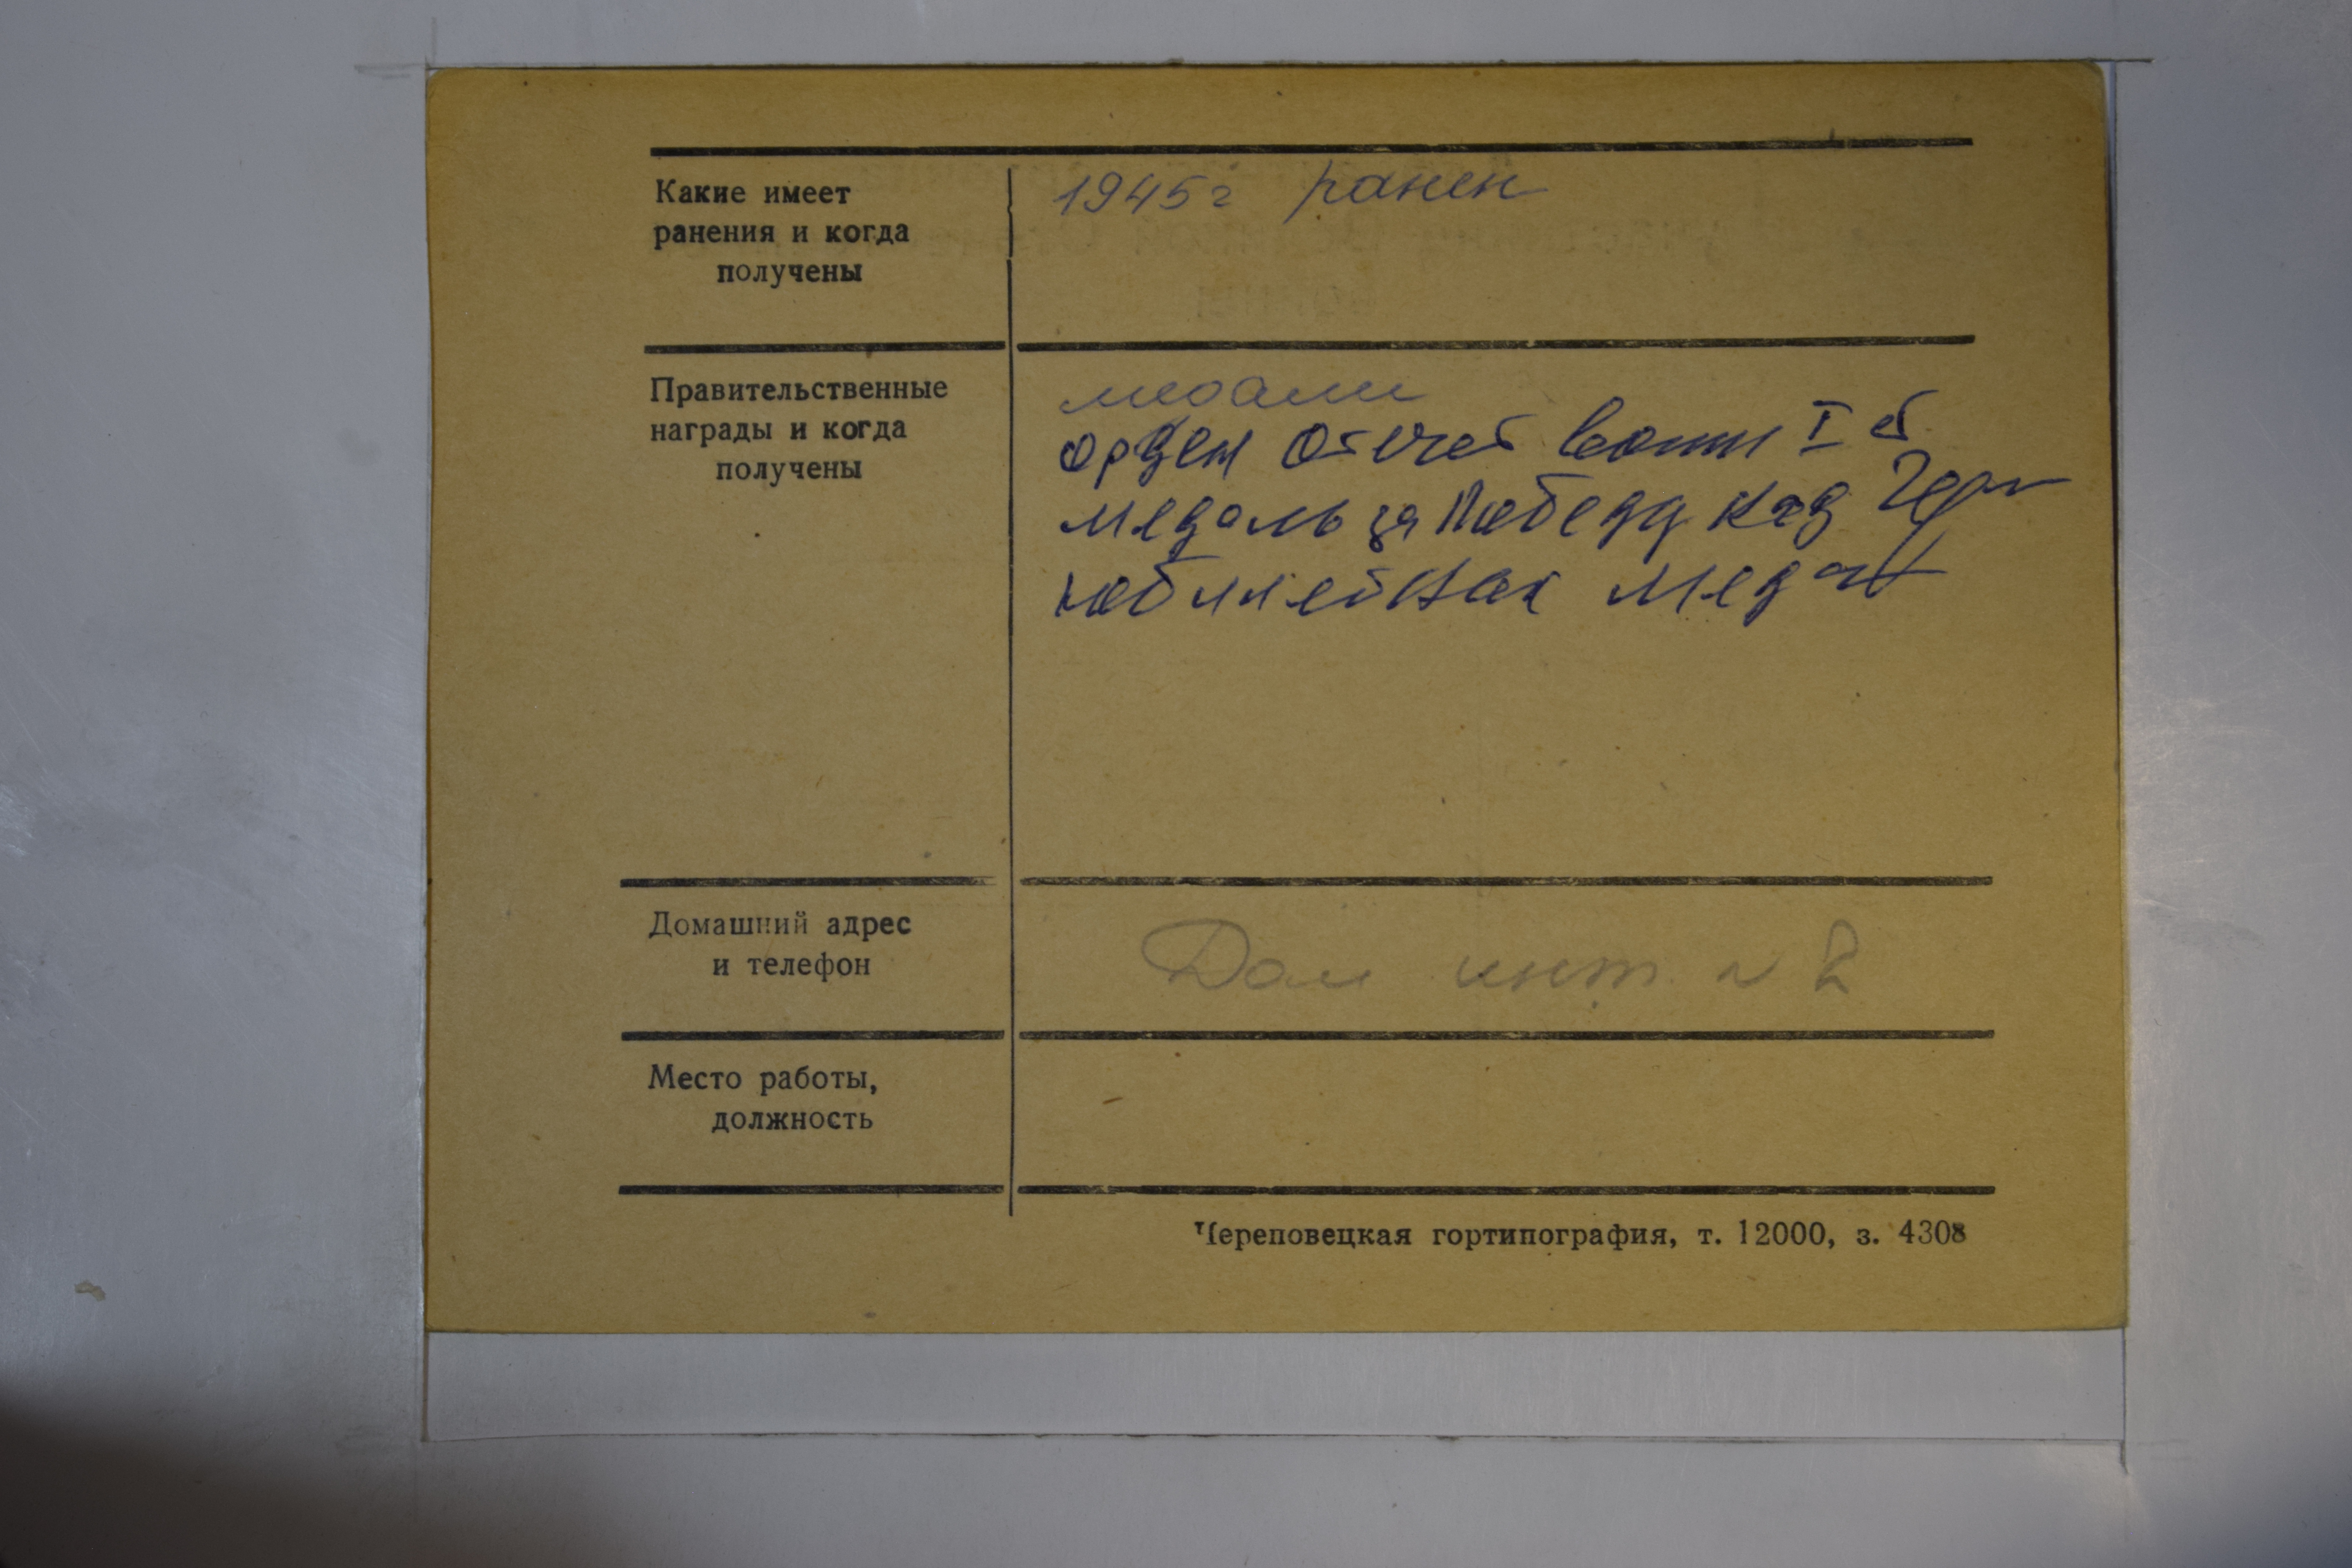 Какие имеет
ранения и когда
получены
1945г ранен
Правительственные
награды и когда
получены
медали
орден Отечест воин I ст
медаль за Победу над Гер
юбилейная медаль
Домашний адрес
и телефон
Дом инт. N 2
Место работы,
должность
Череповецкая гортипография, т. 12000, з. 4308